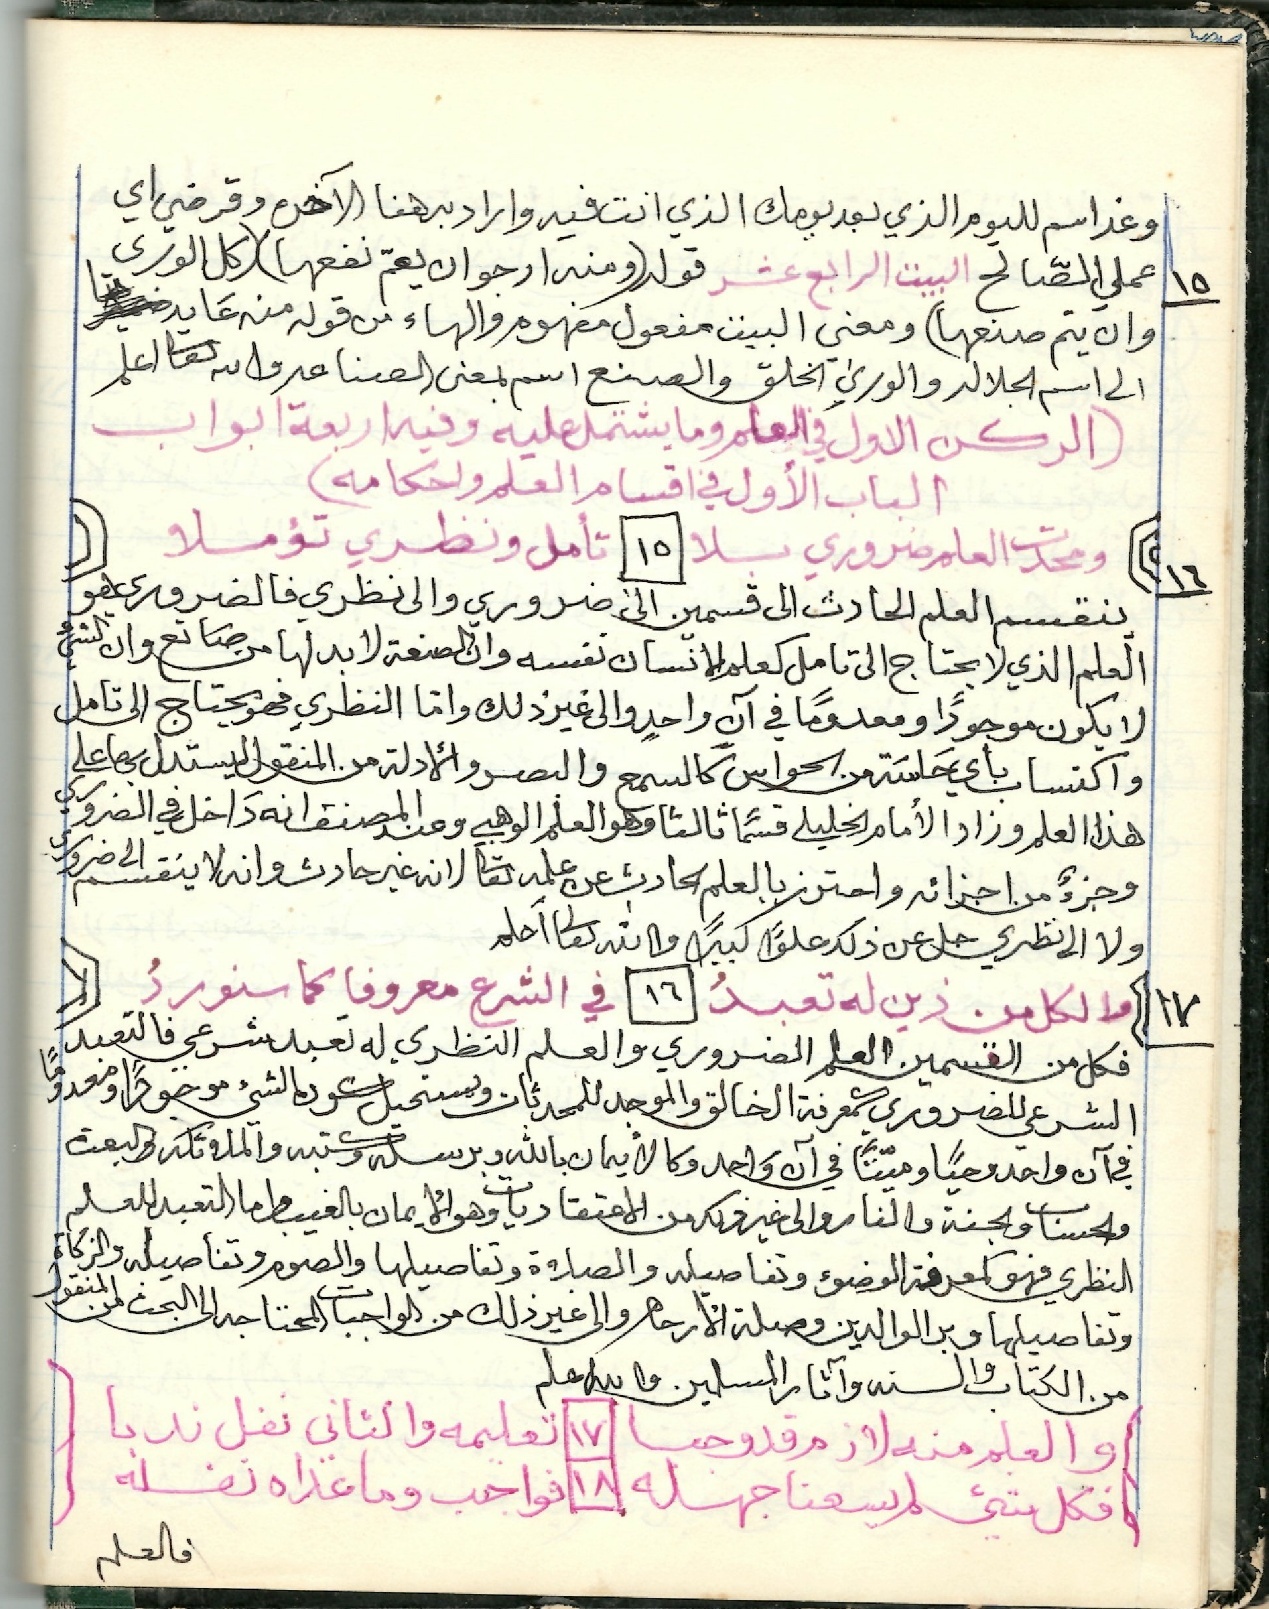 وغد اسم لليوم الذي بعد يومك الذي انت فيه واراد به هنا الآخره وقرضي اي
١٥
عملي الصّالح البيت الرابع عشر قوله (ومنه ارجو ان يعمّ نفعها) (كل الورى
وان يتم صنعها) ومعنى البيت مفعول مفهوم والهاء من قوله منه عايد
الى اسم الجلاله والورى الخلق والصنع اسم بمعنى الصناعه والله تعالى اعلم
(الركن الاول في العلم وما يشتمل عليه وفيه اربعة ابواب
الباب الأول في اقسام العلم واحكامه)
١٦
ومحدث العلم ضروري بلا ١٥ تأمل ونظري تؤملا
ينقسم العلم الحادث الى قسمين الى ضروري والى نظري فالضروري هو
العلم الذي لا يحتاج الى تامل كعلم الانسان نفسه وان الصنعة لا بد لها من صانع وان الشيء
لا يكون موجودًا ومعدومًا في آن واحدٍ والى غير ذلك وامّا النظري فهو يحتاج الى تامل
واكتساب بأي حَاسّة من الحواس كالسمع والبصر والأدلة من المنقول ليستدل بها على
هذا العلم وزاد الأمام الخليلي قسمًا ثالثا وهو العلم الوهبي وعند المصنف انه داخل في الضروري
وجزءٌ من اجزائه واحترز بالعلم الحادث عن علمه تعالى لانه غير حادث وانه لا ينقسم الى ضروري
ولا الى نظري جل عن ذلك علوًا كبيرًا والله تعالى أعلم
١٧
والكل من ذين له تعبدُ ١٦ في الشرع معروفا كما سنوردُ
فكل من القسمين العلم الضروري والعلم النظري له تعبد شرعي فالتعبد
الشرعي للضروري كمعرفة الخالق والموجد للمحدثات ويستحيل كون الشيء موجودًا ومعدومًا
في آن واحد وحيًا وميّتًا في آن واحد وكالأيمان بالله وبرسله وكتبه والملائكه والبعث
والحساب والجنة والنار والى غير ذلك من الاعتقاديات وهو الإيمان بالغيب واما التعبد للعلم
النظري فهو كمعرفة الوضوء وتفاصيله والصلاة وتفاصيلها والصوم وتفاصيله والزكاة
وتفاصيلها وبر الوالدين وصلة الأرحام والى غير ذلك من الواجبات المحتاجه الى البحث من المنقول
من الكتاب والسنه وآثار المسلمين والله اعلم
والعلم منه لازم قد وجبا ١٧ تعليمه والثاني نفل ندبا
فكل شيء لم يسعنا جهله ١٨ فواجب وما عداه نفله
فالعلم